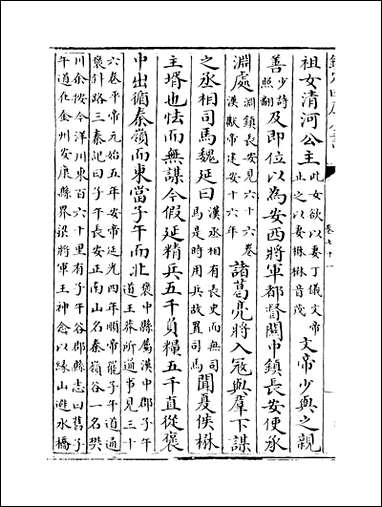 欽定四庫全書
卷七十一
祖女清河公主此女欲以妻丁儀文帝止之以妻楙楙音茂文帝少與之親
善少詩照翻及即位以為安西將軍都督關中鎮長安使承
淵處淵鎮長安見六十六卷漢獻帝建安十六年諸葛亮將入寇與羣下謀
之丞相司馬魏延曰漢丞相有長史而無司馬是時用兵故置司馬聞夏侯楙
主壻也怯而無謀今假延精兵五千負糧五千直從褒
中出循秦嶺而東當子午而北褒中縣屬漢中郡子午道王莽所通事見三十
六卷平帝元始五年安帝延光四年順帝罷子午道通
褒斜路三秦記曰子午長安正南山名秦嶺谷一名樊
川余按今洋川東百六十里有子午谷郡縣志曰舊子
午道在金州安康縣界梁將軍王神念以緣山避水橋